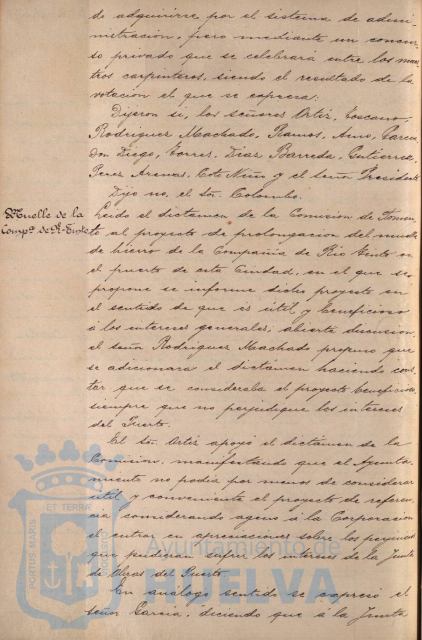 de adquirirse por el sistema de admi-
nistración, pero mediante un concur-
so privado que se celebrará entre los maes-
tros carpinteros, siendo el resultado de la
votación el que se expresa:
Dijeron si, los señores Ortiz, Toscano,
Rodriguez Machado, Ramos, Amo, Garcia
Don Diego, Torres, Diaz Barreda, Gutierrez,
Perez Arenas, Coto Niño y el señor Presidente
Dijo no, el Sor. Colombo.
Muelle de la
Compª. de R-Tinto
Leido el dictamen de la Comision de Fomen-
to al proyecto de prolongacion del muelle
de hierro de la Compañia de Rio Tinto en
el puerto de esta Ciudad, en el que se
propone se informe dicho proyecto en
el sentido de que es útil y beneficioso
á los intereses generales; abierta discusion,
el señor Rodriguez Machado propuso que
se adicionara el dictámen haciendo cons-
tar que se consideraba el proyecto beneficioso
siempre que no perjudique los intereses
del Puerto.
El Sor. Ortiz apoyó el dictámen de la
Comision, manifestando que el Ayunta-
miento no podia por menos de considerar
útil y conveniente el proyecto de referen-
cia considerando ageno á la Corporacion
el entrar en apreciaciones sobre los perjuicios
que pudieran sufrir los intereses de la Junta
de Obras del Puerto.
En análogo sentido se expresó el
señor Garcia, diciendo que á la Junta
PORTUS MARIS
ET TERRÆ
CUSTODIO
Ayuntamiento de
HUELVA